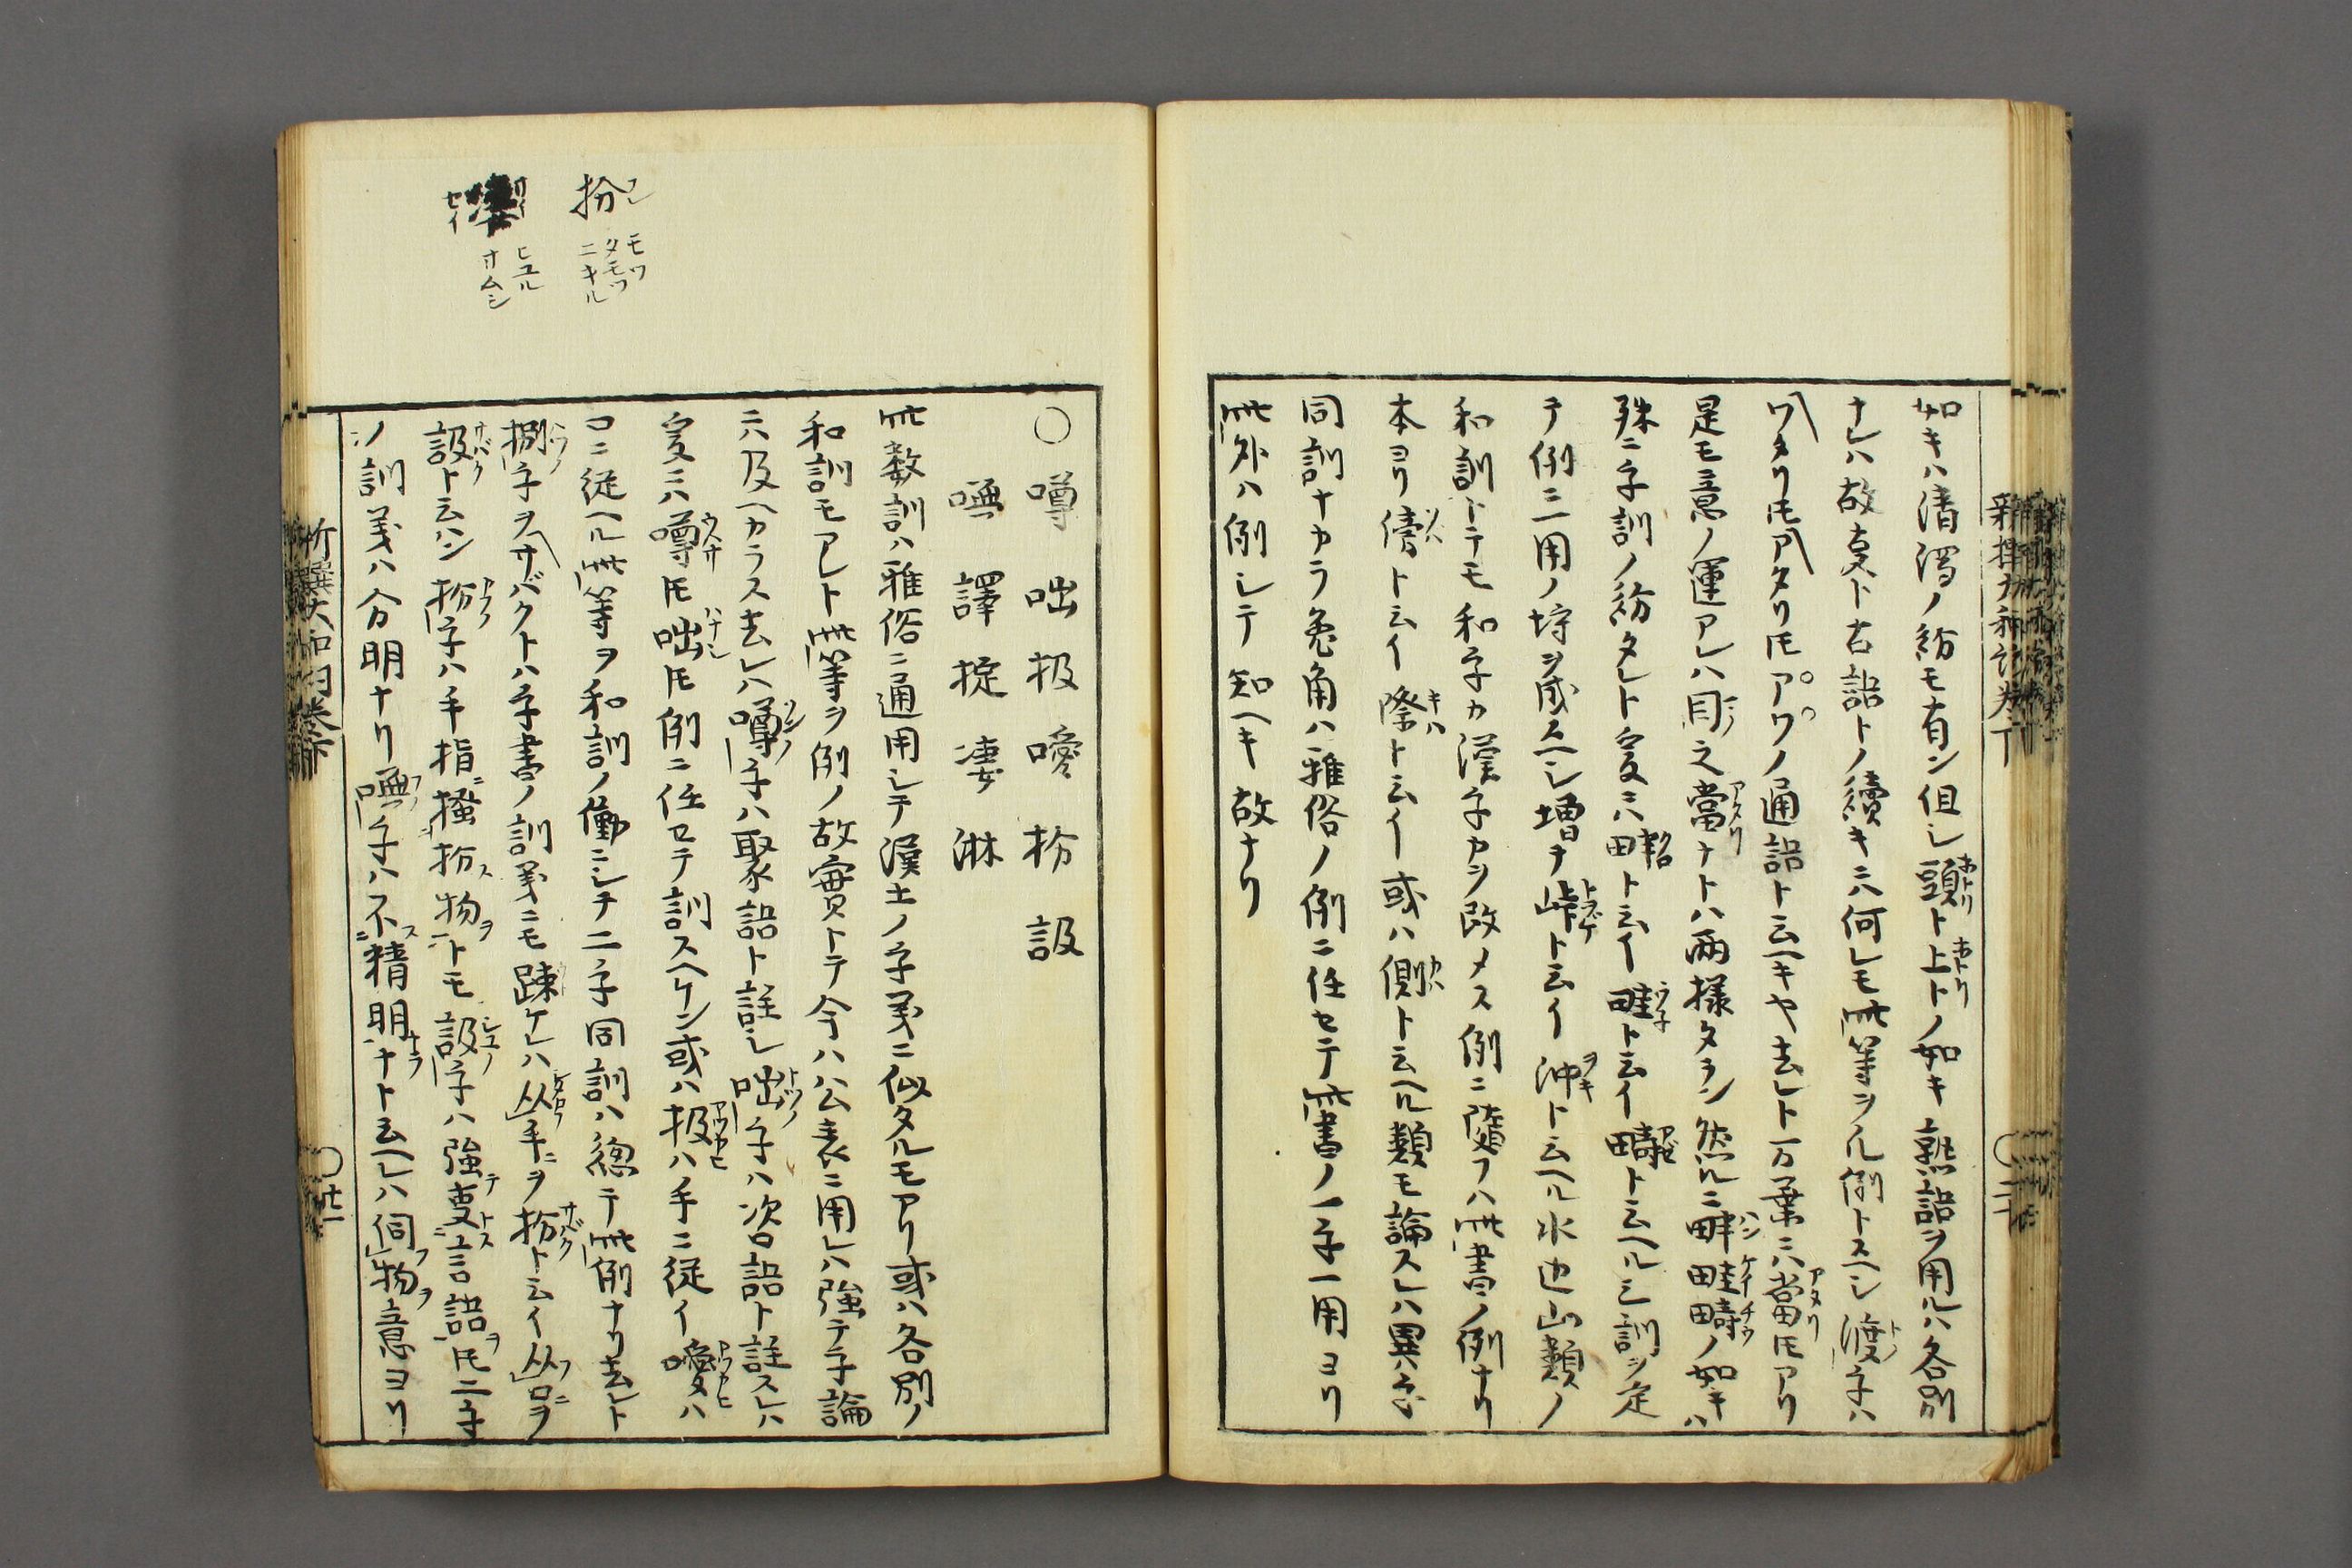 如キハ清濁ノ紛モ有ン但シ頭ト上トノ如キ熟語ヲ用ルハ各別
ナレハ故事ト古語トノ續キニハ何レモ此等ヲル例トスヘシ渡字ハ
ワタリ𪜈アタリ𪜈アワノ通語ト云ヘキヤ去レト万葉ニハ當𪜈アリ
是モ意ノ運アレハ目之當ナトハ兩様タラン然ルニ畔畦疇ノ如キハ
殊ニ字訓ノ紛タレト爰ニハ畔ト云イ畦ト云イ疇ト云ヘルシ訓ヲ定
テ例ニ二用ノ埒ヲ成スヘシ増テ峠ト云イ沖ト云ヘル水辺山類ノ
和訓トテモ和字カ漢字カヲ改メス例ニ隨フハ此書ノ例ナリ
本ヨリ傍ト云イ際ト云イ或ハ側ト云ヘル類モ論スレハ異ハ
同訓ナカラ兔角ハ雅俗ノ例ニ任セテ此書ノ一字一用ヨリ
此外ハ例シテ知ヘキ故ナリ
○噂 咄 扱 噯 扮 訯
嘸 譯 掟 凄 淋
此数訓ハ雅俗ニ通用シテ漢土ノ字義ニ似タルモアリ或ハ各別ノ
和訓モアレト此等ヲ例ノ故實トテ今ハ公表ニ用レハ強テ字論
ニハ及ヘカラス去レハ噂字ハ聚語ト註シ咄字ハ次口語ト註スレハ
爰ニハ噂𪜈咄𪜈例ニ任セテ訓スヘケン或ハ扱ハ手ニ從イ噯ハ
口ニ從ヘル此等ヲ和訓ノ働ニシテ二字同訓ハ總テ此例ナリ去レト
捌字ヲサバクトハ字書ノ訓義ニモ踈ケレハ从手ヲ扮ト云イ从口ヲ
訯ト云ハン扮字ハ手指搔扮物トモ訯字ハ強事言語𪜈二字
ノ訓義ハ分明ナリ嘸字ハ不精明ナト云ヘレハ伺物意ヨリ
扮 フン
モツ
タモツ
ニキル
セイ
ヒユル
サムシ